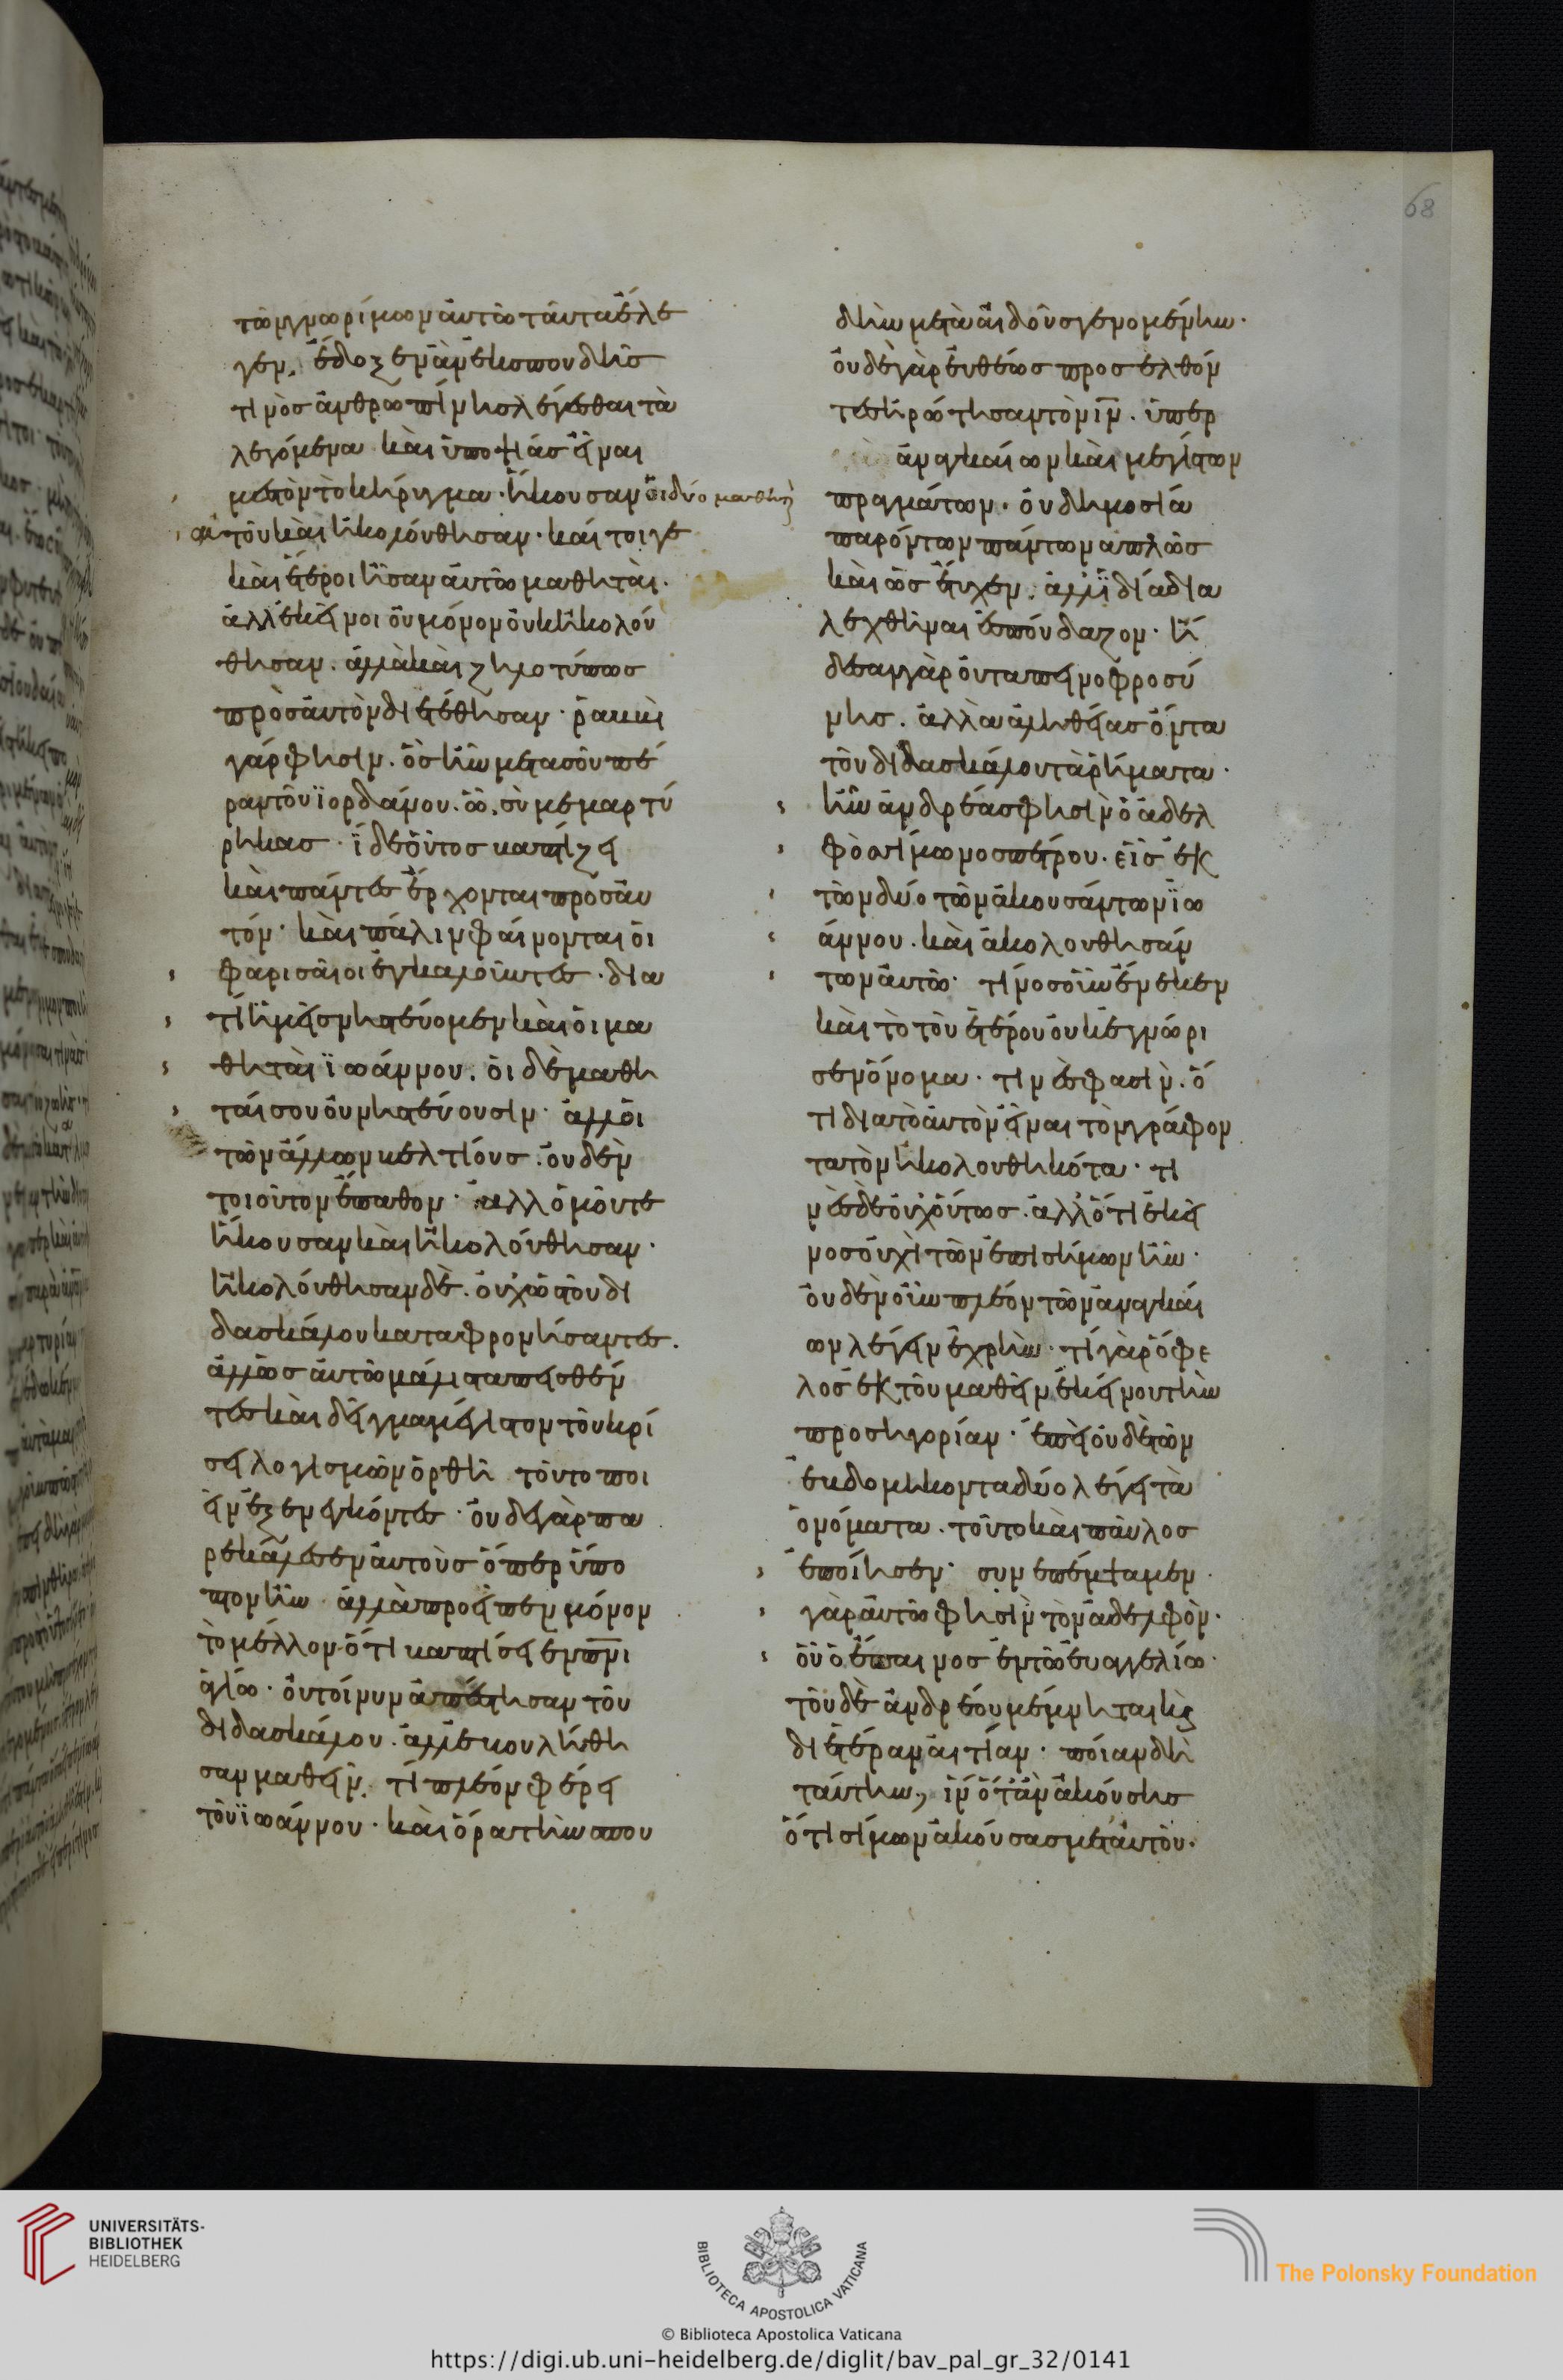 τῶν γνωρίμων αὐτῶ ταῦτα ἔλε
γεν. ἔδοξεν ἂν ἐκ σπουδῆς
τινὸς ἀνθρωπίνης λέγεσθαι τὰ
λεγόμενα καὶ ὑποψίας εἶναι
μεστὸν τὸ κήρυγμα· ἤκουσαν οἱ δύο μαθητ
αὐτοῦ καὶ ἠκολούθησαν· καί τοι γε
καὶ ἕτεροι ἦσαν αὐτῶ μαθηταὶ.
ἀλλ' ἐκεῖνοι οὐ μόνον οὐκ ἠκολού
θησαν. ἀλλὰ καὶ ζηλοτύπως
πρὸς αὐτὸν διετέθησαν· ῥαββὶ
γάρ φησιν. ὃς ἦν μετὰ σοῦ πέ
ραν τοῦ ϊορδάνου. ὧ σὺ μεμαρτύ
ρηκας· ΐδε οὗτος βαπτίζει
καὶ πάντες ἔρχονται πρὸς αὐ
τόν· καὶ πάλιν φαίνονται οἱ
φαρισαῖοι ἐγκαλοῦντες· δια
τί ἡμεῖς νηστεύομεν καὶ οἱ μα
θηταὶ ϊωάννου. οἱ δὲ μαθη
ταί σου οὐ νηστεύουσιν· ἀλλ' οἱ
τῶν ἄλλων βελτίους. οὐδὲν
τοιοῦτον ἔπαθον· ἀλλ' ὁμοῦ τε
ἤκουσαν καὶ ἠκολούθησαν·
ἠκολούθησαν δὲ. οὐχ' ὡς τοῦ δι
δασκάλου καταφρονήσαντες.
ἀλλ' ὡς αὐτῶ μάλιστα πεισθέν
τες καὶ δεῖγμα μέγιστον τοῦ κρί
σει λογισμῶν ὀρθῆ τοῦτο ποι
εῖν ἐξενεγκόντες· οὐδὲ γὰρ πα
ρεκάλεσεν αὐτοὺς ὅπερ ὕπο
πτον ἦν ἀλλὰ προεῖπεν μόνον
τὸ μέλλον ὅτι βαπτίσει ἐν πνι
ἁγίω· οὔτοίνυν ἀπέστησαν τοῦ
διδασκάλου. ἀλλ' ἐβουλήθη
σαν μαθεῖν. τί πλέον φέρει
τοῦ ϊωάννου· καὶ ὅρα τὴν σπου
δὴν μετὰ αἰδοῦς γενομένην.
οὐδὲ γὰρ εὐθέως προσελθόν
τες ἠρώτησαν τὸν ιν. ὑπερ
ἀναγκαίων καὶ μεγίστων
πραγμάτων. οὐ δημοσία
παρόντων πάντων ἁπλῶς
καὶ ὡς ἔτυχεν. ἀλλ' ϊδία δια
λεχθῆναι ἐσπούδαζον· ἤ
δεσαν γὰρ οὐ ταπεινοφροσύ
νης. ἀλλὰ ἀληθείας ὄντα
τοῦ διδασκάλου τὰ ῥήματα.
ἦν ἀνδρέας φησὶν ὁ ἀδελ
φὸς σίμωνος πέτρου. εἷς ἐκ
τῶν δύο τῶν ἀκουσάντων ϊω
άννου. καὶ ἀκολουθησάν
των αὐτῶ· τίνος οὖν ἕνεκεν
καὶ τὸ τοῦ ἑτέρου οὐκ ἐγνώρι
σεν ὄνομα. τινές φασὶν. ὅ
τι διὰ τὸ αὐτὸν εἶναι τὸν γράφον
τα τὸν ἠκολουθηκότα· τι
νὲς δὲ οὐχ' οὕτως. ἀλλ' ὅτι ἐκεῖ
νος οὐχὶ τῶν ἐπισήμων ἦν.
οὐδὲν οὖν πλέον τῶν ἀναγκαί
ων λέγειν ἐχρῆν· τί γὰρ ὄφε
λος ἐκ τοῦ μαθεῖν ἐκείνου τὴν
προσηγορίαν· ἐπεὶ οὐδὲ τῶν
ἑβδομήκονταδύο λέγει τὰ
ὀνόματα. τοῦτο καὶ παῦλος
ἐποίησεν· συνεπέμψαμεν
γὰρ αὐτῶ φησὶν τὸν ἀδελφὸν.
οὗ ὁ ἔπαινος ἐν τῶ εὐαγγελίω.
τοῦ δὲ ἀνδρέου μέμνηται κς
δι ἑτέραν αἰτίαν· ποίαν δὴ
ταύτην, ἵν' ὅτ' ἂν ἀκούσης
ὅτι σίμων ἀκούσας μετ' αὐτοῦ.
68
UNIVERSITÄTS-
BIBLIOTHEK
HEIDELBERG
BIBLIOTECA APOSTOLICA VATICANA
The Polonsky Foundation
© Biblioteca Apostolica Vaticana
https://digi.ub.uni-heidelberg.de/diglit/bav_pal_gr_32/0141